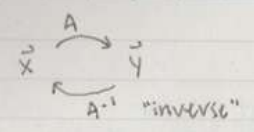 A
x⃗ y⃗
A⁻¹ "inverse"